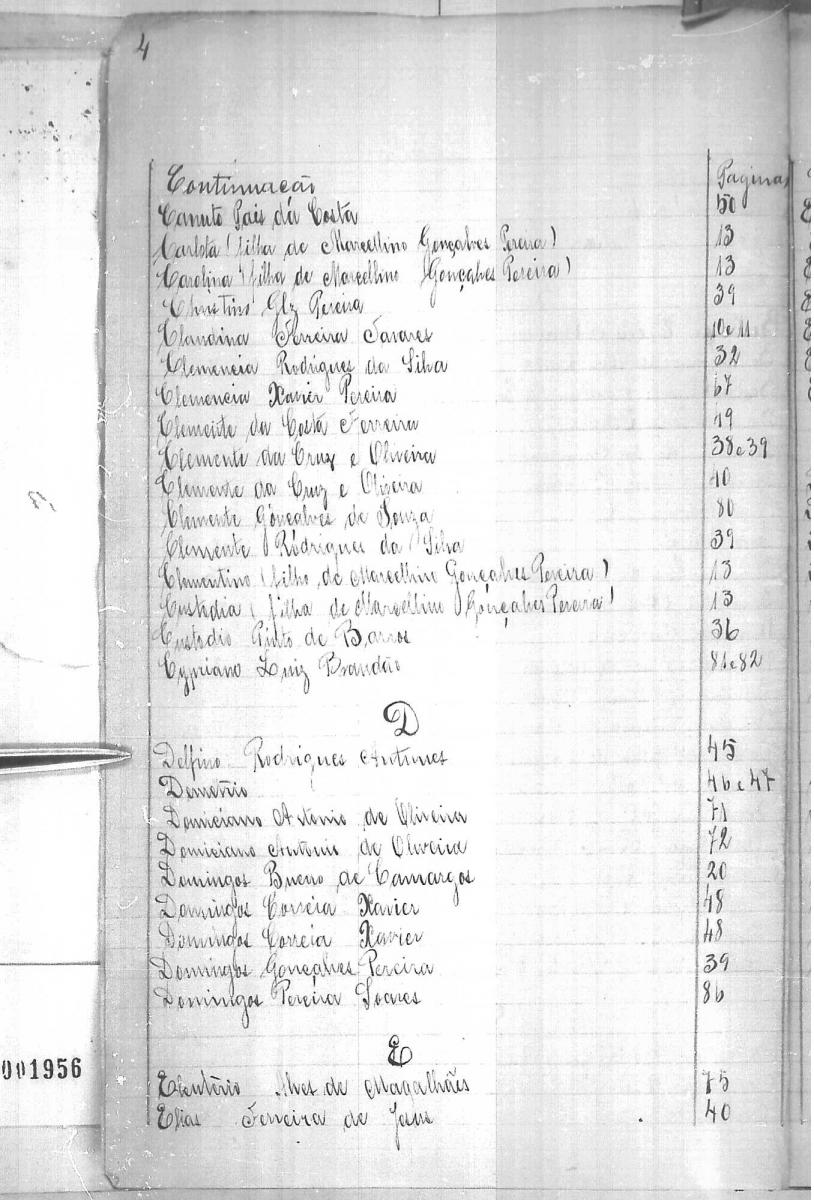 4
Continuação Paginas
Canuto Pais da Costa 50
Carlota (filha de Marcellino Gonçalves Pereira) 13
Carolina (filha de Marcellino Gonçalves Pereira) 13
Christino Glz Pereira 39
Claudina Ferreira Tavares 10 e 11
Clemencia Rodrigues da Silva 32
Clemencia Xavier Pereira 67
Clemente da Costa Ferreira 19
Clemente da Cruz e Oliveira 38 e 39
Clemente da Cruz e Oliveira 40
Clemente Gonçalves de Souza 80
Clemente Rodrigues da Silva 39
Clementino (filho de Marcellino Gonçalves Pereira) 13
Custodia (filha de Marcellino Gonçalves Pereira) 13
Custodio Pinto de Barros 36
Cypriano Luiz Brandão 81 e 82
D
Delfino Rodrigues Antunes 45
Demetrio 46 e 47
Domiciano Antonio de Oliveira 71
Domiciano Antonio de Oliveira 72
Domingos Bueno de Camargos 20
Domingos Correia Xavier 48
Domingos Correia Xavier 48
Domingos Gonçalves Pereira 39
Domingos Pereira Soares 86
E
Eleutério Alves de Magalhães 75
Elias Ferreira de Jesus 40
001956